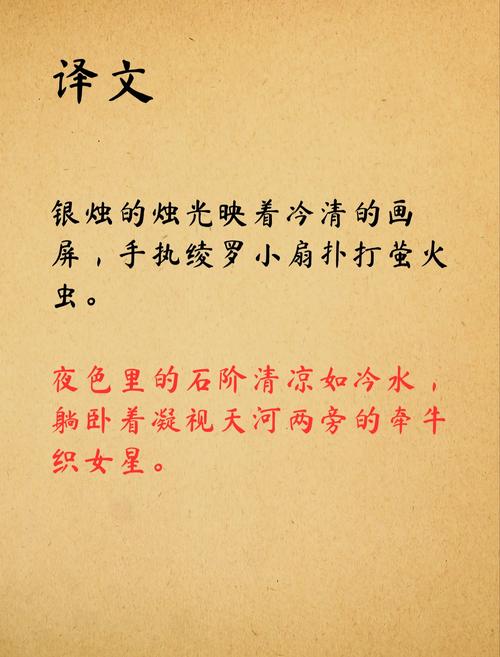 译文
银烛的烛光映着冷清的画
屏，手执绫罗小扇扑打萤火
虫。
夜色里的石阶清凉如冷水，
躺卧着凝视天河两旁的牵牛
织女星。